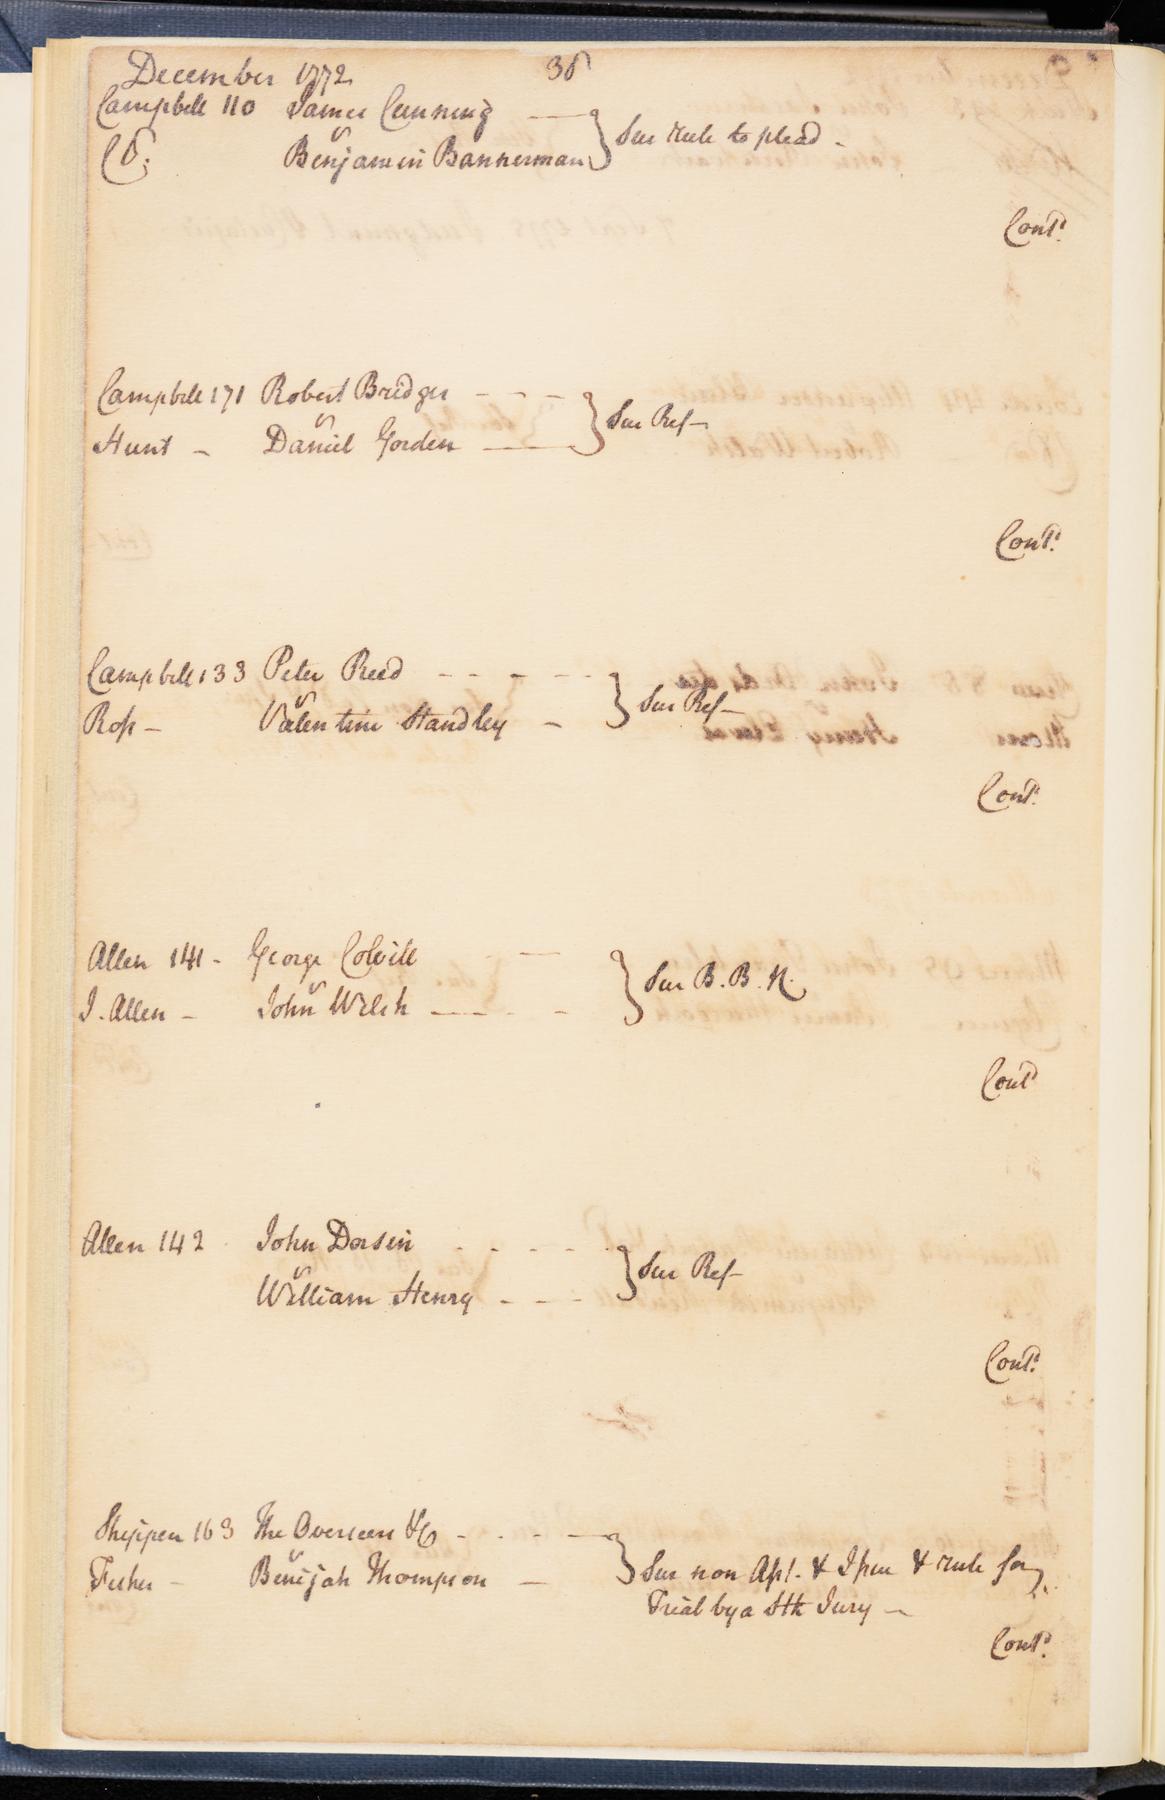 December 1772
Campbell 110 James Cunning
v
Benjamin Bannerman } Sur rule to plead -
Contd.
Campbell 171 Robert Bridges - - - } Sur Ref -
v
Hunt - Daniel Gorden
Contd.
Campbell 133 Peter Reed - - - - - } Sur Ref -
v
Ross - Valentine Standley -
Contd.
Allen 141 - George Colvill - } Sur B. B. N.
v
J. Allen - John Welsh - - -
Contd
Allen 142 John Dorsin - - - - } Sur Ref -
v
William Henry - - -
Contd.
Shippen 163 The Overseers &c - - - - } Sur non Apt. & Issue & rule for
v
Fisher - Benijah Thompson -
Trial by a Stk Jury -
Contd.